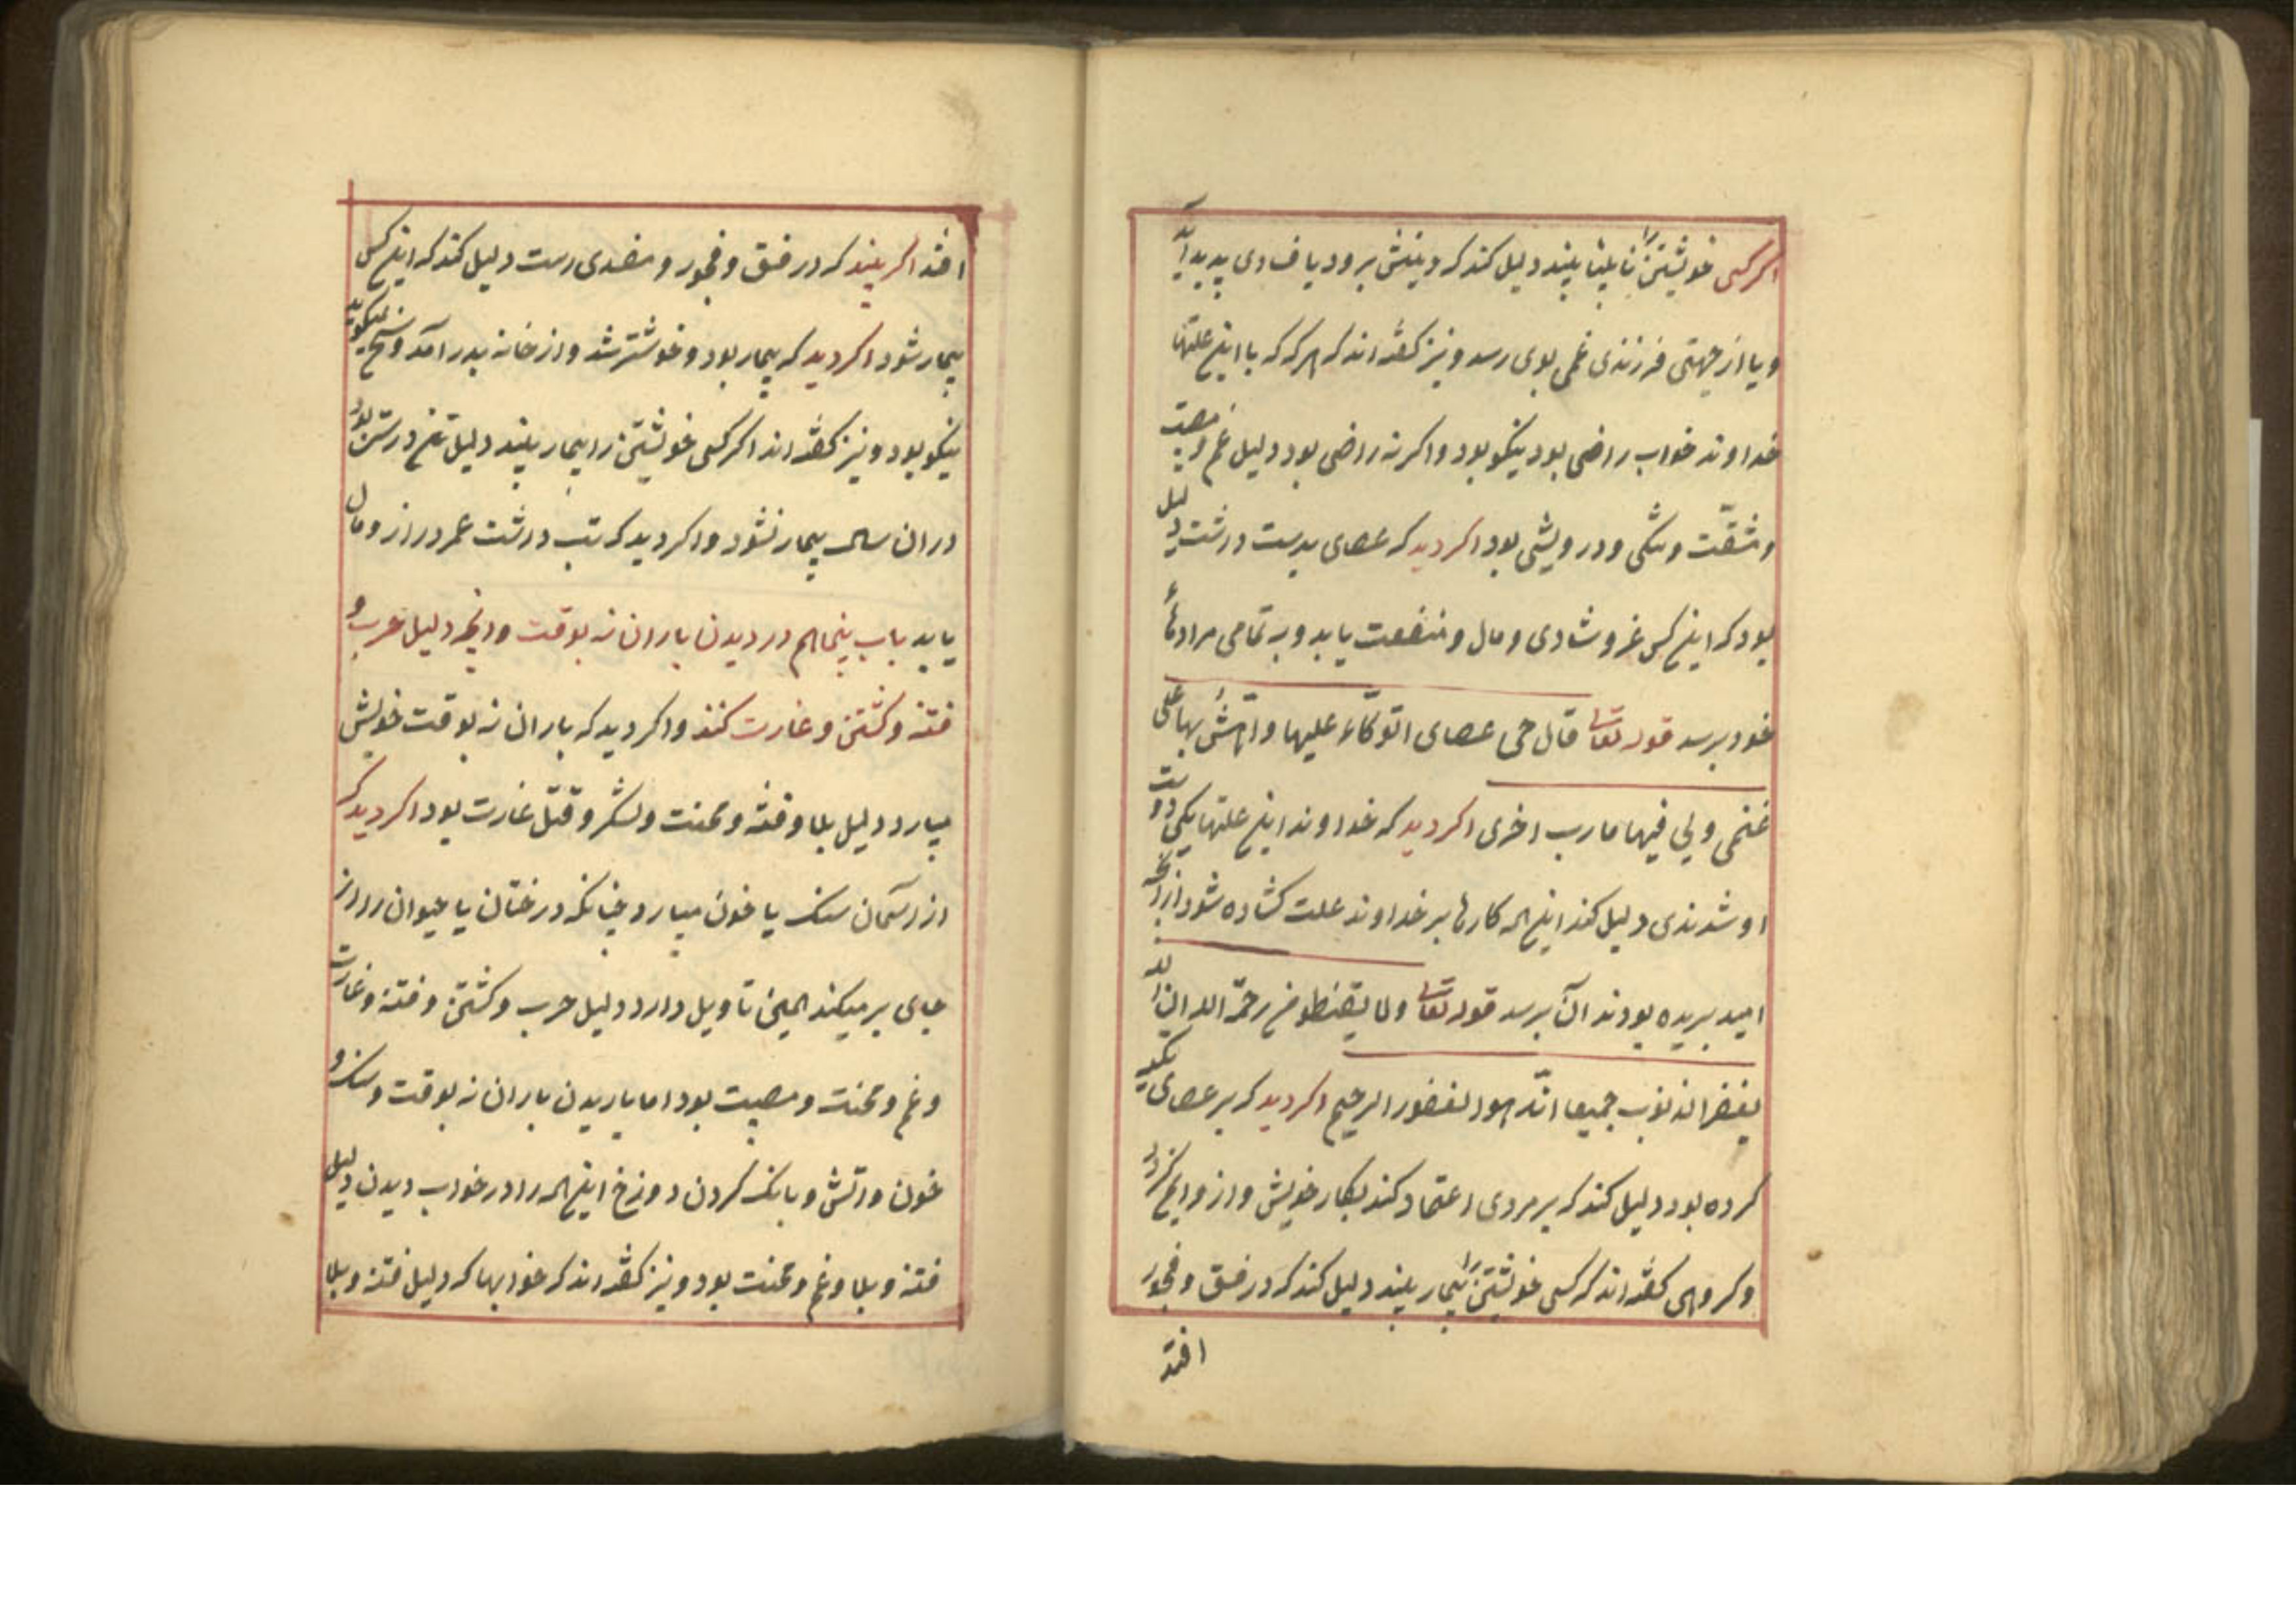 اکر کسی خویشتن را نابینا بیند دلیل کند که دینش برود یا فسادی پدید آید
و یا از جهتی فرزندی غمی بوی رسد و نیز کفته اند که هرکه که با این علتها
خداوند خواب راضی بود نیکو بود و اکر نه راضی بود دلیل غم و مصیبت
و مشقّت و تنکی و درویشی بود اکر دید که عصای بدست داشت دلیل
بود که این کس عز و شادی و مال و منفعت یابد و به تمامی مرادهاء
خود برسد قوله تعالی قال هی عصای اتوکاء علیها و اهش بها علی
غنمی ولی فیها مارب اخری اکر دید که خداوند این علتها یکی دوست
او شدندی دلیل کند این همه کارها بر خداوند علت کشاده شود از آنکه
امید بریده بودند آن برسد قوله تعالی ولا تقنطو من رحمة الله ان الله
یغفر الذنوب جمیعا انّه هو الغفور الرحیم اکر دید که بر عصای تکیه
کرده بود دلیل کند که بر مردی اعتماد کند بکار خویش و از و ایمن کردد
و کروهی کفته اند که کسی خویشتن را بیمار بیند دلیل کند که در فسق و فجور
افتد
افتد اکر بیند که در فسق و فجور و مفسدی است دلیل کند که این کس
بیمار شود اکر دید که بیمار بود و خوشتر شد و از خانه بدر آمد و سخن میکوید
نیکو بود و نیز کفته اند اکر کسی خویشتن را بیمار بیند دلیل تن درستی بود
در ان سال بیمار نشود و اکر دید که تب داشت عمر دراز و مال
یابد باب پنجاهم در دیدن باران نه بوقت و انچه دلیل حرب و
فتنه و کشتن و غارت کنند و اکر دید که باران نه بوقت خویش
میبارد دلیل بلا و فتنه و محنت و لشکر و قتل غارت بود اکر دید که
از آسمان سنک یا خون میبارد چنانکه درختان یا حیوان را از
جای بر میکند همین تاویل دارد دلیل حرب و کشتن و فتنه و غارت
و غم و محنت و مصیبت بود اما باریدن باران نه بوقت و سنک و
خون و آتش و بانک کردن دوزخ این همه را در خواب دیدن دلیل
فتنه و بلا و غم و محنت بود و نیز کفته اند که خوابها که دلیل فتنه و بلا